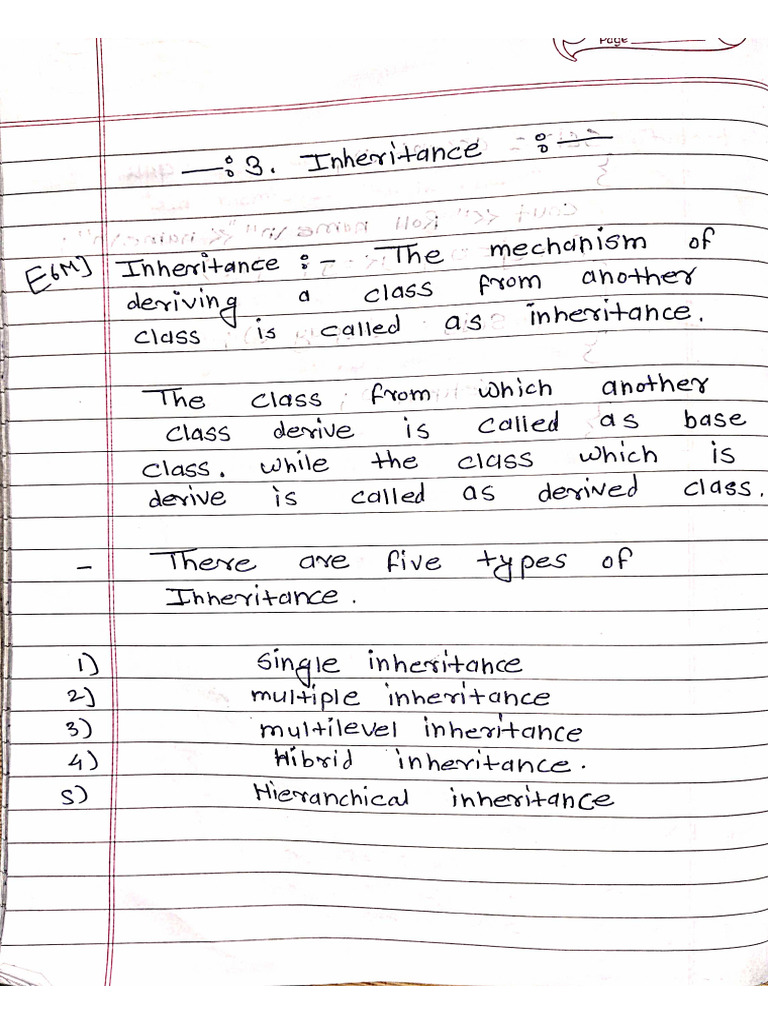 Page
—: 3. Inheritance :—
E6M] Inheritance :- The mechanism of
deriving a class from another
class is called as inheritance.
The class from which another
class derive is called as base
class. while the class which is
derive is called as derived class.
- There are five types of
Inheritance.
1) Single inheritance
2) multiple inheritance
3) multilevel inheritance
4) Hibrid inheritance.
5) Hieranchical inheritance